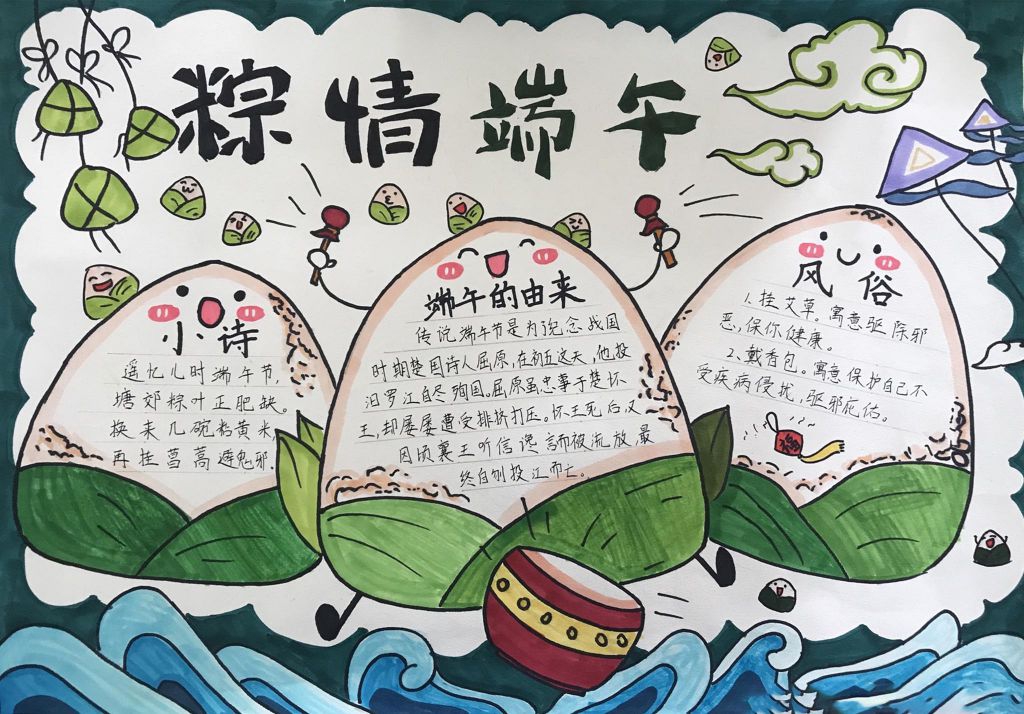 粽情端午
小诗
遥忆儿时端午节,
塘郊粽叶正肥缺。
换来几碗粘黄米,
再挂菖蒿避鬼邪.
端午的由来
传说端午节是为了纪念战国
时期楚国诗人屈原,在初五这天,他投
汨罗江自尽殉国。屈原虽忠事于楚怀
王,却屡屡遭受排挤打压。怀王死后又
因顷襄王听信谗言而被流放,最
终自刎投江而亡。
风俗
1.挂艾草。寓意驱除邪
恶,保你健康。
2.戴香包。寓意保护自己不
受疾病侵扰,驱邪庇佑。